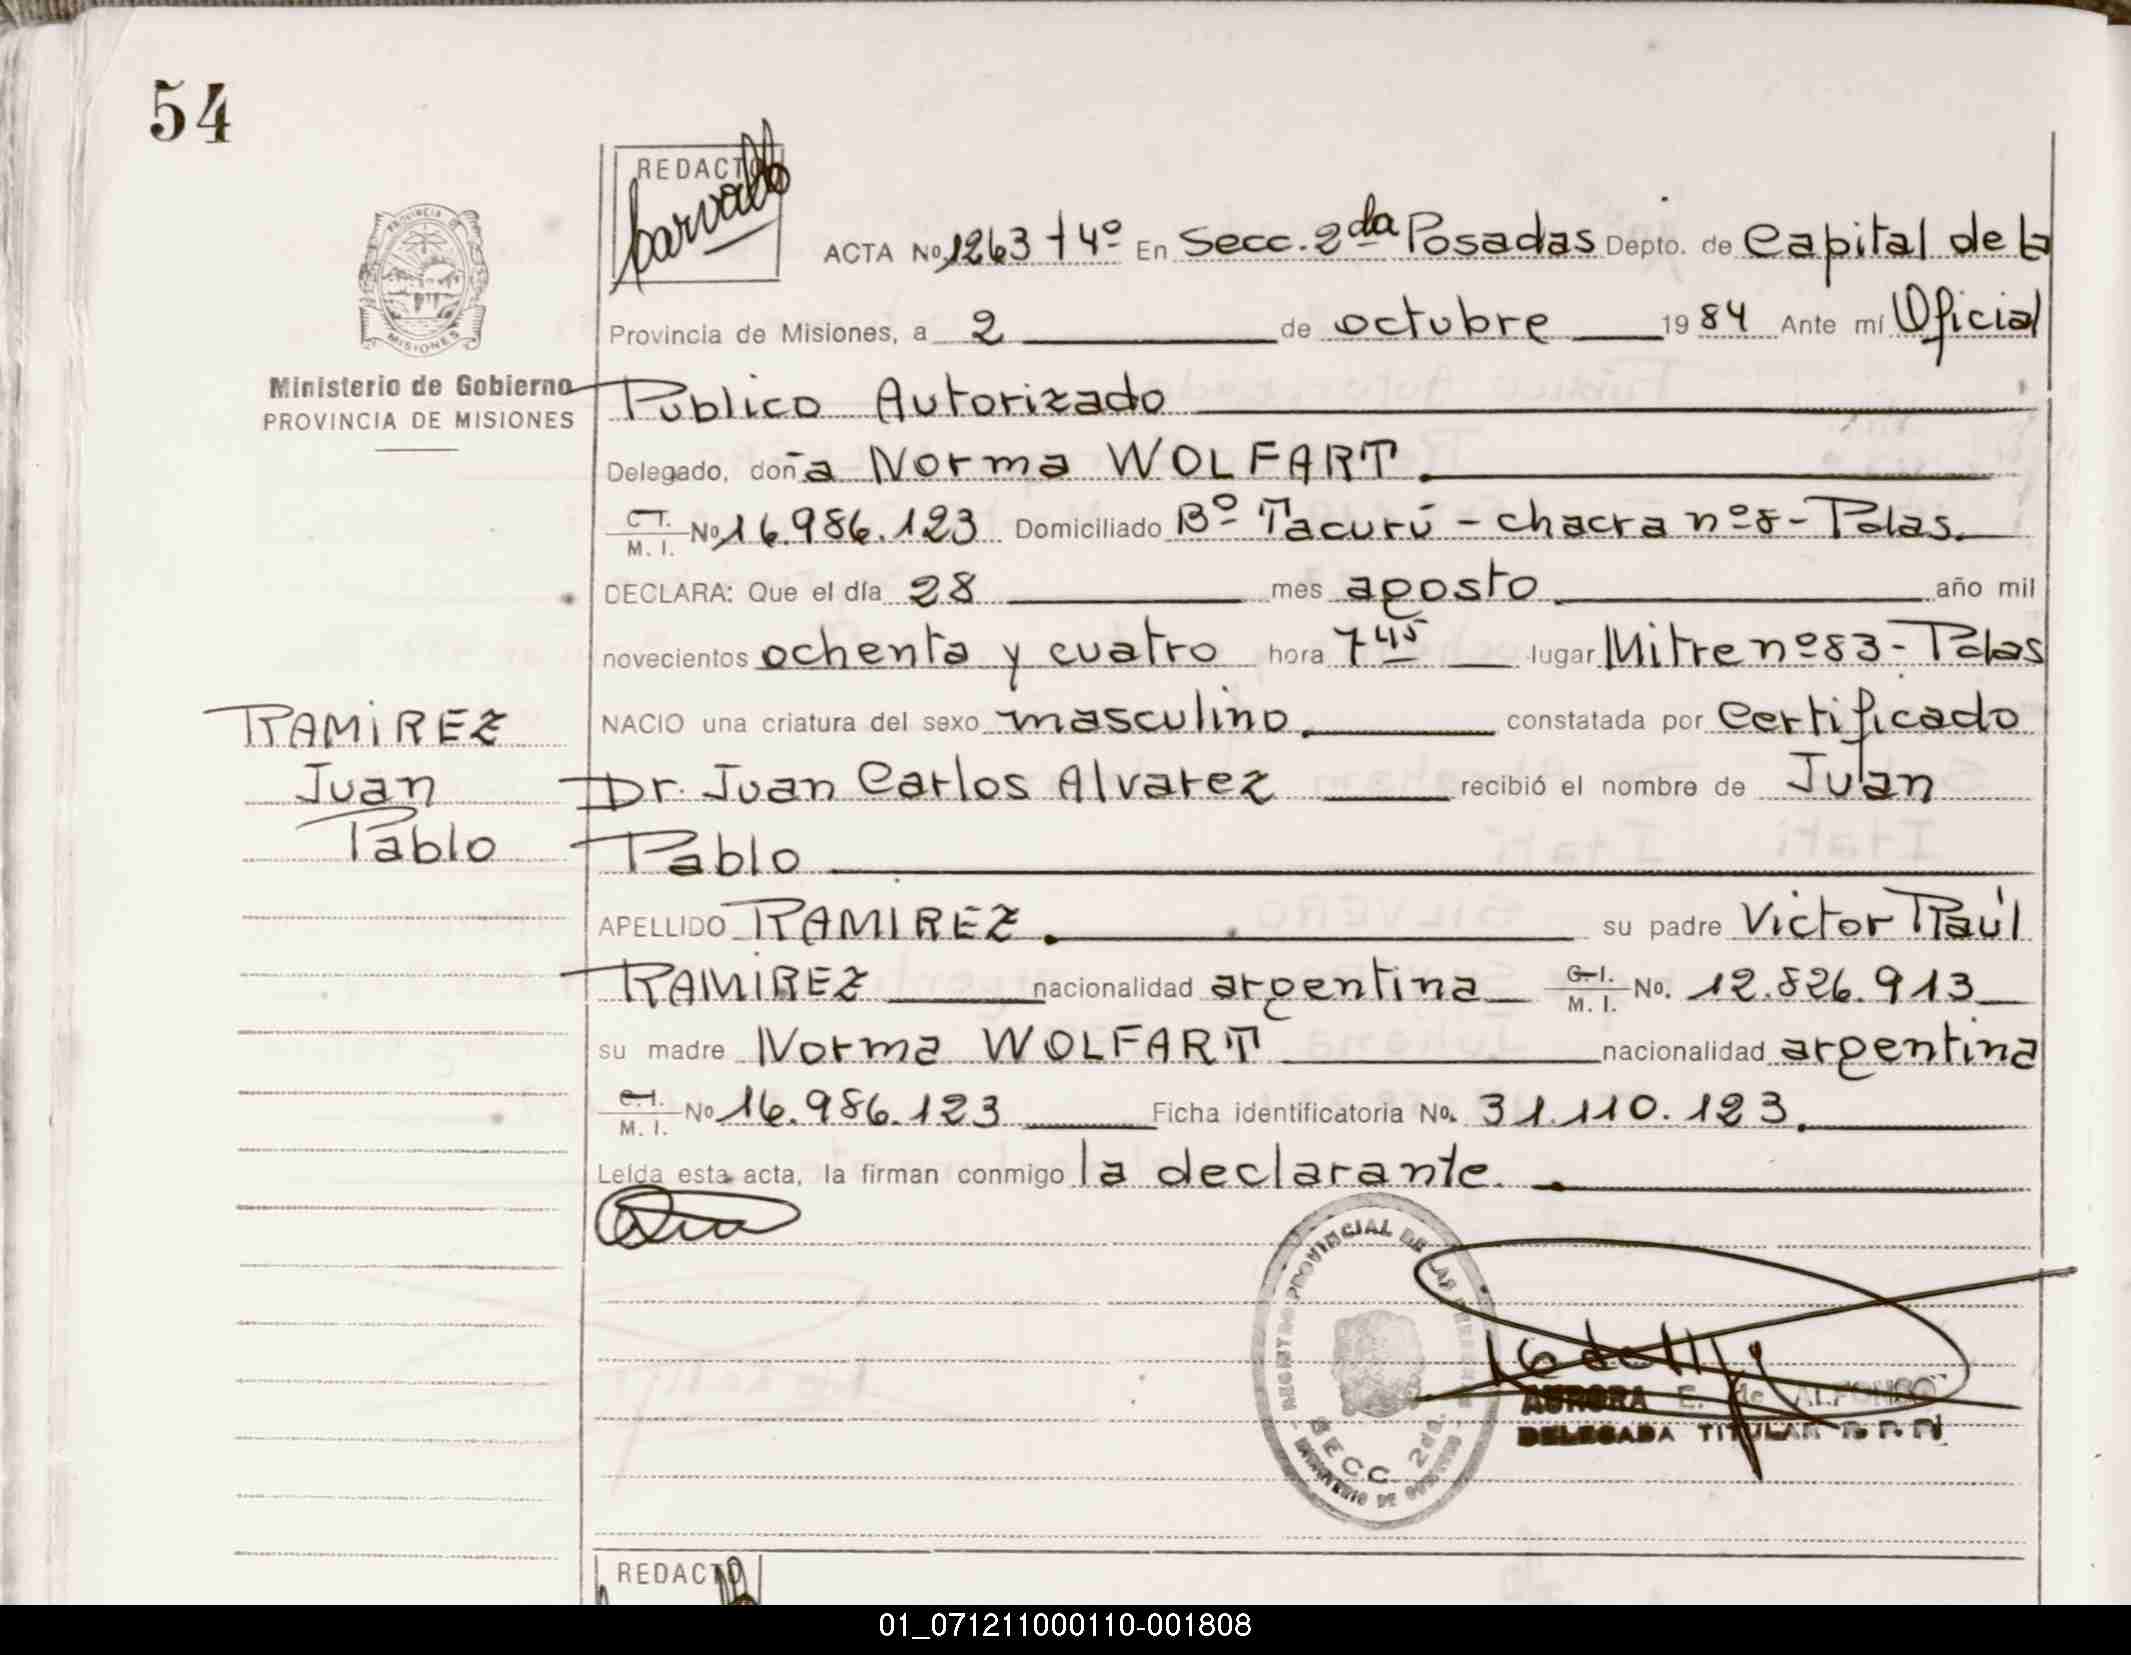 54
REDACTO
Carvallo
ACTA No 1263 T 4º En Secc. 2da Posadas Depto. de Capital de la
PROVINCIA DE
MISIONES
Provincia de Misiones, a 2 de octubre 19 84 Ante mí Oficial
Ministerio de Gobierno
PROVINCIA DE MISIONES
Público Autorizado
Delegado, doña Norma WOLFART.
C.I. M. I. No 16.986.123 Domiciliado Bº Tacurú - chacra nº 8 - Pdas.
DECLARA: Que el día 28 mes agosto año mil
novecientos ochenta y cuatro hora 7 45 lugar Mitre nº 83 - Pdas
NACIO una criatura del sexo masculino, constatada por Certificado
RAMIREZ
Juan
Pablo
Dr. Juan Carlos Alvarez recibió el nombre de Juan
Pablo
APELLIDO RAMIREZ. su padre Victor Raúl
RAMIREZ nacionalidad argentina C.I. M. I. No. 12.826.913
su madre Norma WOLFART nacionalidad argentina
C.I. M. I. No 16.986.123 Ficha identificatoria No. 31.110.123.
Leída esta acta, la firman conmigo la declarante.
REGISTRO PROVINCIAL DE LAS PERSONAS
SECC. 2da.
MINISTERIO DE GOBIERNO
AURORA E. de ALFONSO
DELEGADA TITULAR R. P. P.
REDACTO
01_071211000110-001808